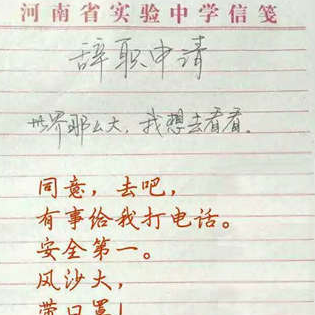 河南省实验中学信笺
辞职申请
世界那么大，我想去看看。
同意，去吧，
有事给我打电话。
安全第一。
风沙大，
带口罩！